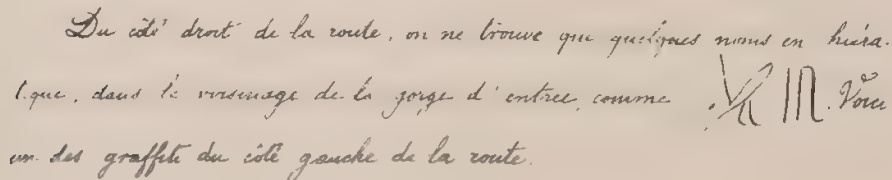 Du côté droit de la route, on ne trouve que quelques noms en hiéra-
tique, dans le voisinage de la gorge d'entrée, comme . Voici
un des graffiti du côté gauche de la route.